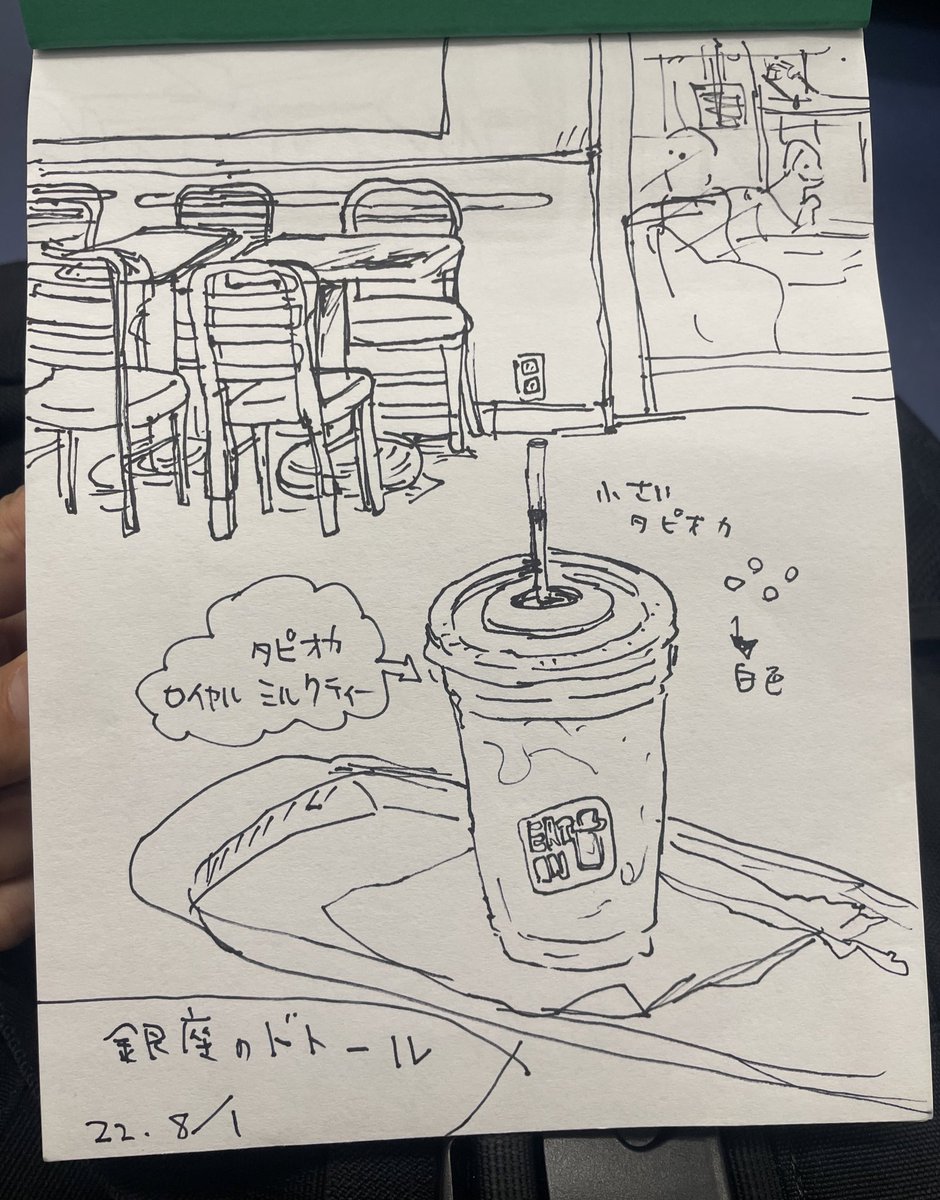 小さい
タピオカ
白色
タピオカ
ロイヤル ミルクティー
EAT
IN
銀座のドトール
22.8/1